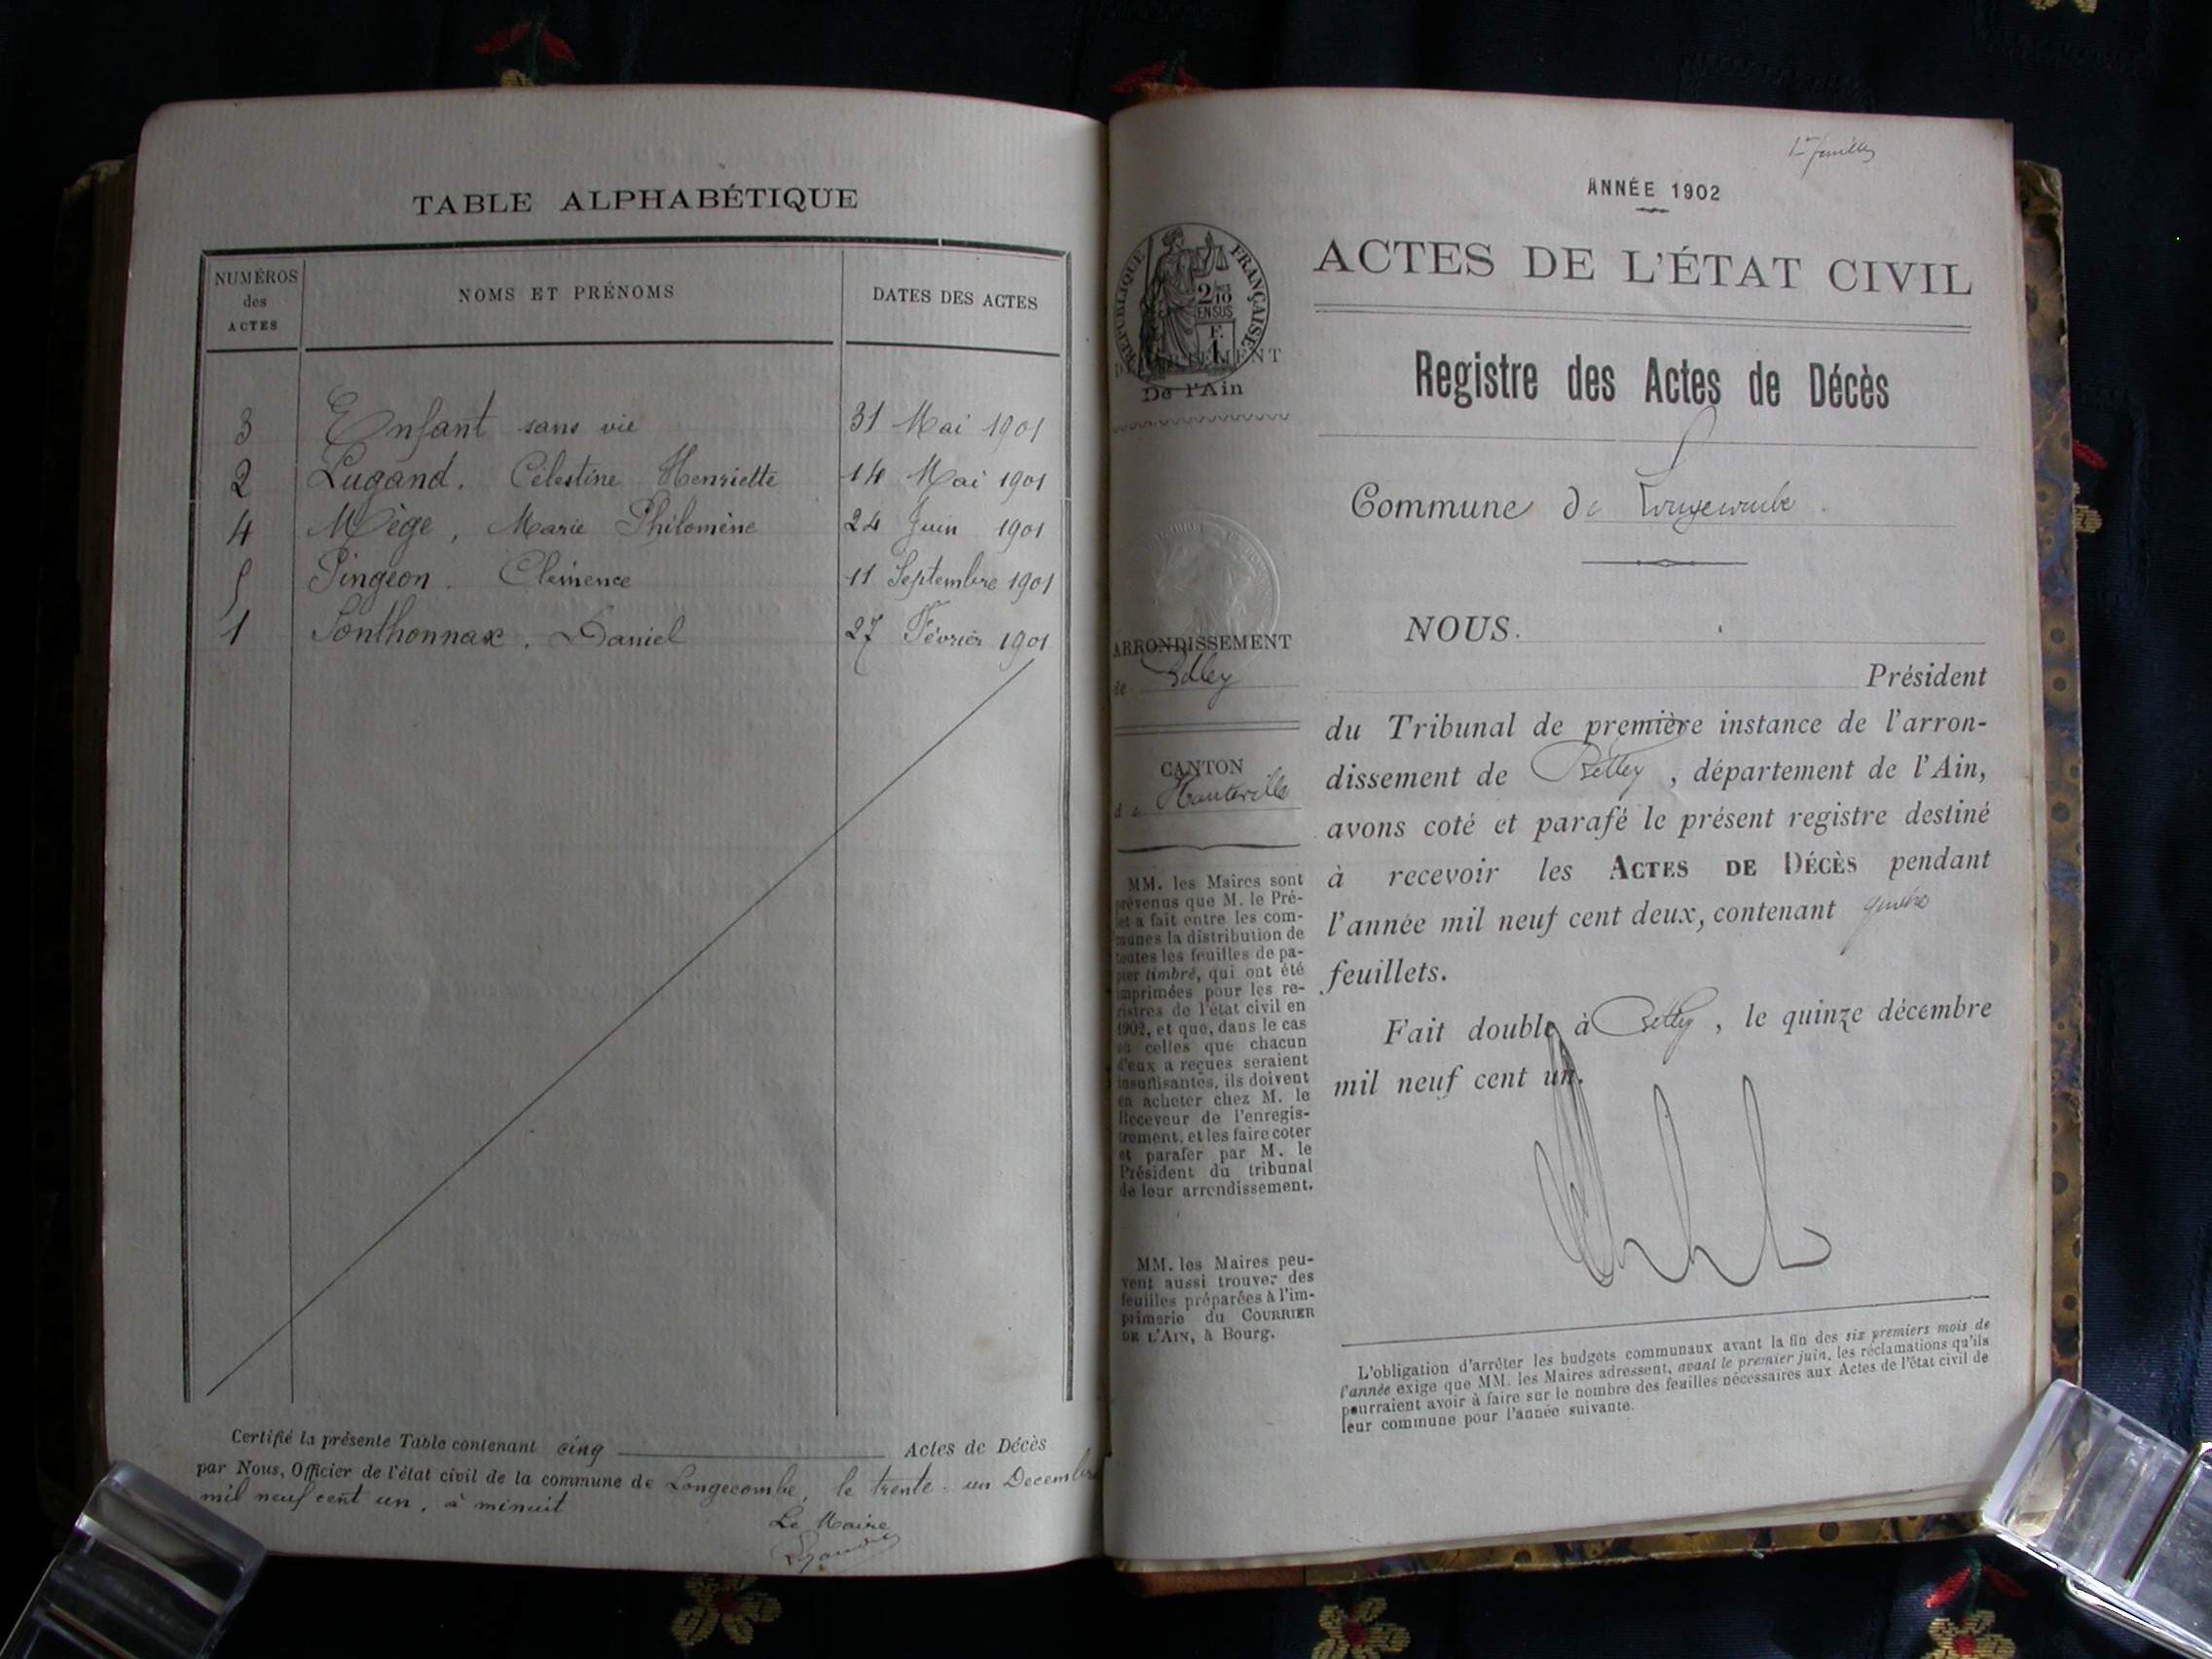 TABLE ALPHABÉTIQUE
NUMÉROS
des
ACTES
NOMS ET PRÉNOMS
DATES DES ACTES
3 Enfant sans vie 31 Mai 1901
2 Lugand, Célestine Henriette 14 Mai 1901
4 Mège, Marie Philomène 24 Juin 1901
5 Pingeon, Clémence 11 Septembre 1901
1 Sonthonnax, Daniel 27 Février 1901
Certifié la présente Table contenant cinq Actes de Décès
par Nous, Officier de l'état civil de la commune de Longecombe, le trente-un Decembre
mil neuf cent un, à minuit
Le Maire
ANNÉE 1902
RÉPUBLIQUE FRANÇAISE
2/10
EN SUS
F.
1
DÉPARTEMENT
De l'Ain
ARRONDISSEMENT
de Belley
CANTON
de Hauteville
MM. les Maires sont
prévenus que M. le Pré-
fet a fait entre les com-
munes la distribution de
toutes les feuilles de pa-
pier timbré, qui ont été
imprimées pour les re-
gistres de l'état civil en
1902, et que, dans le cas
où celles que chacun
d'eux a reçues seraient
insuffisantes, ils doivent
en acheter chez M. le
Receveur de l'enregis-
trement, et les faire coter
et parafer par M. le
Président du tribunal
de leur arrondissement.
MM. les Maires peu-
vent aussi trouver des
feuilles préparées à l'im-
primerie du COURRIER
DE L'AIN, à Bourg.
ACTES DE L'ÉTAT CIVIL
Registre des Actes de Décès
Commune de Longecombe
NOUS.
Président
du Tribunal de première instance de l'arron-
dissement de Belley, département de l'Ain,
avons coté et parafé le présent registre destiné
à recevoir les ACTES DE DÉCÈS pendant
l'année mil neuf cent deux, contenant
feuillets.
Fait double à Belley, le quinze décembre
mil neuf cent un.
L'obligation d'arrêter les budgets communaux avant la fin des six premiers mois de
l'année exige que MM. les Maires adressent, avant le premier juin, les réclamations qu'ils
pourraient avoir à faire sur le nombre des feuilles nécessaires aux Actes de l'état civil de
leur commune pour l'année suivante.